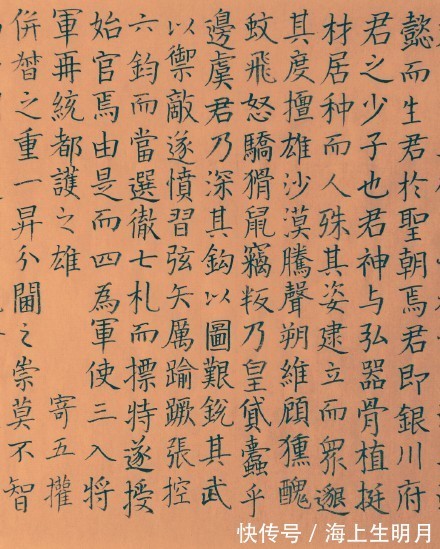 懿而生君於聖朝焉君即銀川府
君之少子也君神与弘器骨植挺
材居种而人殊其姿建立而眾邈
其度擅雄沙漠騰聲朔維顧獯醜
蚊飛怒驕猾鼠竊叛乃皇貸蠹乎
邊虞君乃深其鈎以圖艱銳其武
以禦敵遂憤習弦矢厲踰蹶張控
六鈞而當選徹七札而摽特遂授
始官焉由是而四為軍使三入將
軍再統都護之雄 寄五擁
併之重一昇分閫之崇莫不智
快传号 / 海上生明月